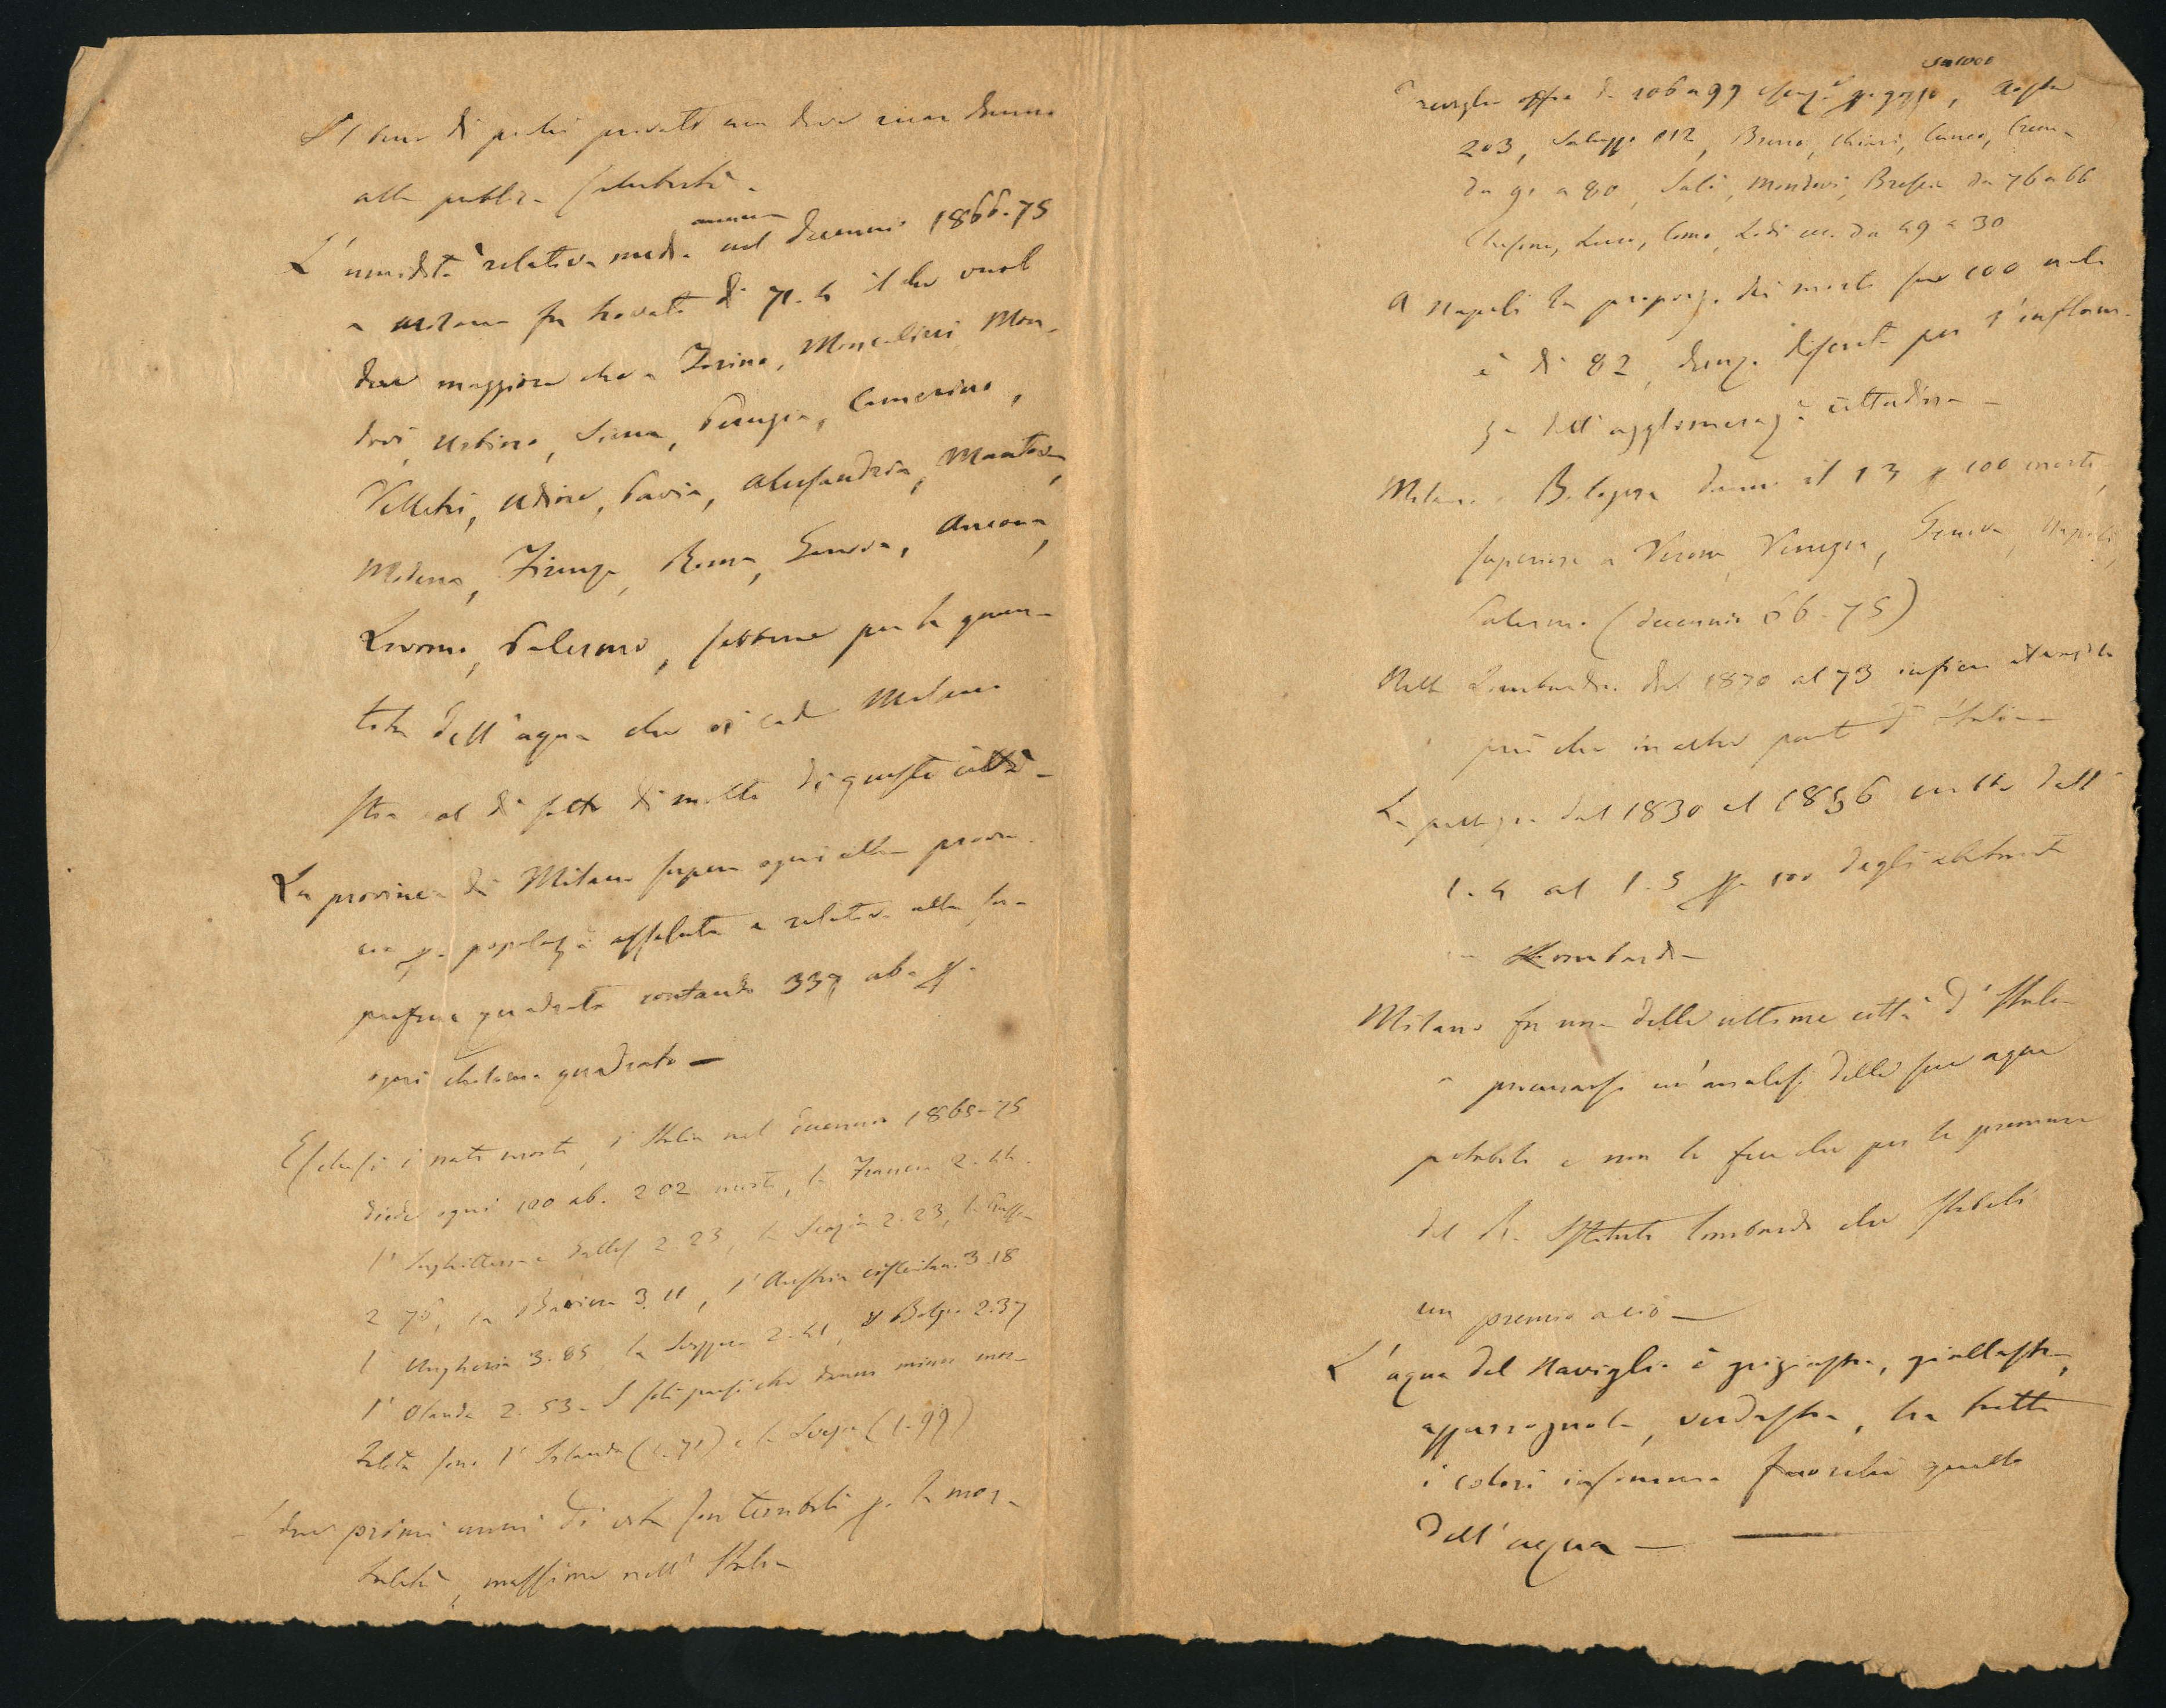 di pochi privati non deve recar danno
alla pubblica salubrità -
L'umidità relativa media annua nel decennio 1866-75
a Milano fu trovata di 71.4 il che vuol
dire maggiore che a Torino, Moncalieri Mon-
dovì, Urbino, Siena, Perugia, Camerino,
Velletri, Udine, Pavia, Alessandria, Mantova,
Modena, Firenze, Roma, Genova, Ancona,
Livorno, Palermo, sebbene per la quan-
tità dell'aqua che vi cade Milano
stia al di sotto di molte di queste città -
La provincia di Milano supera ogni altra provin-
cia p. popolaz. assoluta e relativa alla su-
perficie quadrata contando 337 ab. p.
ogni chilom. quadrato -
Esclusi i nati morti, l'Italia nel decennio 1865-75
diede ogni 100 ab. 202 morti, la Francia 2.44.
l'Inghilterra e Galles 2.23, la Scozia 2.23, la Prussia
2 70, la Baviera 3.11, l'Austria cisleitan. 3.18
l'Ungheria 3.85, la Svizzera 2.41, il Belgio 2.37
l'Olanda 2.53 - I soli paesi che danno minor mor-
talità sono l'Irlanda (1.71) e la Svezia (1.99)
I due primi anni di età son terribili p. la mor-
talità, massime nell'Italia
su 1000
Treviglio offre da 106 a 99 p. gozzo, Aosta
203, Saluzzo 112, Breno, Chiari, Cuneo, Crema
da 91 a 80, Salò, Mondovì, Brescia da 76 a 66
Clusone, Lecco, Como, Lodi ecc. da 49 a 30
A Napoli la proporz. dei morti su 100 nati
è di 82, discreta per l'influen-
za dell'agglomeraz. cittadina -
Milano e Bologna danno il 13 p 100 morti,
superiore a Verona, Venezia, Genova, Napoli,
Palermo (decennio 66-75)
Nella Lombardia dal 1870 al 73
più che in altre parti d'Italia -
La pellagra dal 1830 al 1856 dall'
1.4 al 1.5 p. 100 degli abitanti
in Lombardia -
Milano fu una delle ultime città d'Italia
a procurarsi un'analisi delle sue aque
potabili e non la fece che per le premure
del R. Istituto lombardo che stabilì
un premio a ciò -
L'aqua del Naviglio è grigiastra, giallastra,
verdastra, ha tutti
i colori insomma fuorchè quello
dell'aqua -